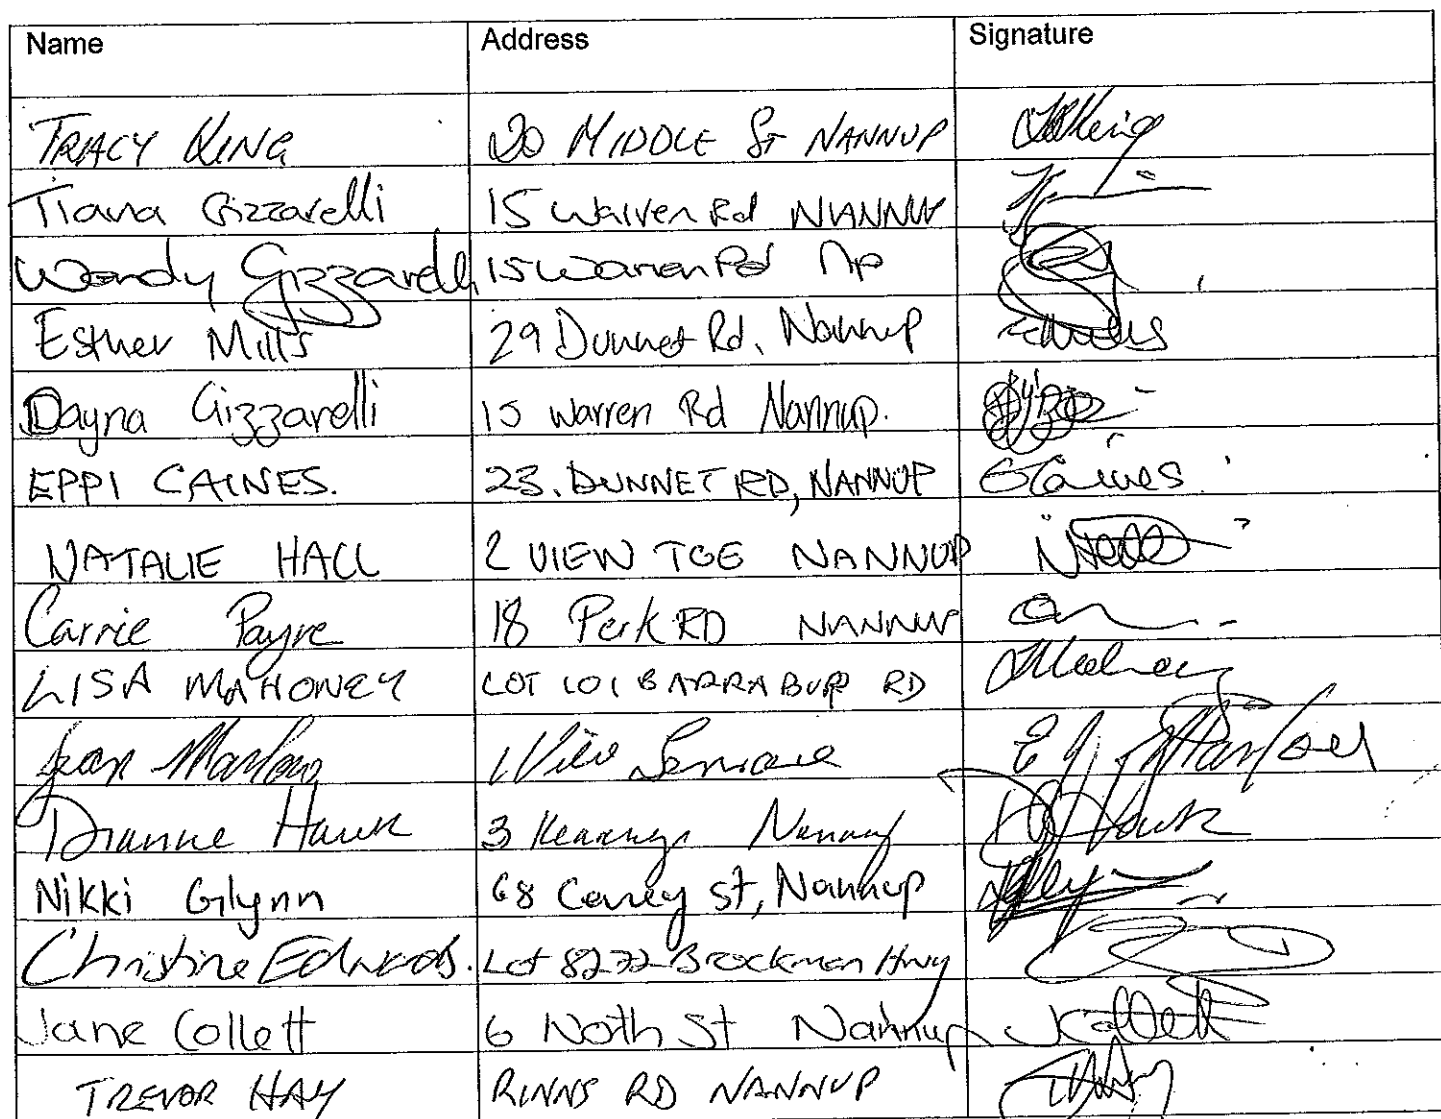 Name Address Signature
TRACY KING 20 MIDDLE St NANNUP TKing
Tiana Gizzarelli 15 Warren Rd NANNUP
Wendy Gizzarelli 15 Warren Rd Np
Esther Mills 29 Dunnet Rd, Nannup EMills
Dayna Gizzarelli 15 Warren Rd Nannup.
EPPI CAINES. 23. DUNNET RD, NANNUP ECaines
NATALIE HALL 2 VIEW TCE NANNUP NHall
Carrie Payne 18 Perk RD NANNUP
LISA MAHONEY LOT 101 BARRABUP RD LMahoney
Jean Marlow EJ Marlow
Dianne Hawk 3 Nannup D Hawk
Nikki Glynn 68 Carey St, Nannup
Christine Edwards. Lot 8272 Brockman Hwy
Jane Collett 6 North St Nannup JCollett
TREVOR HAY RINNS RD NANNUP THay